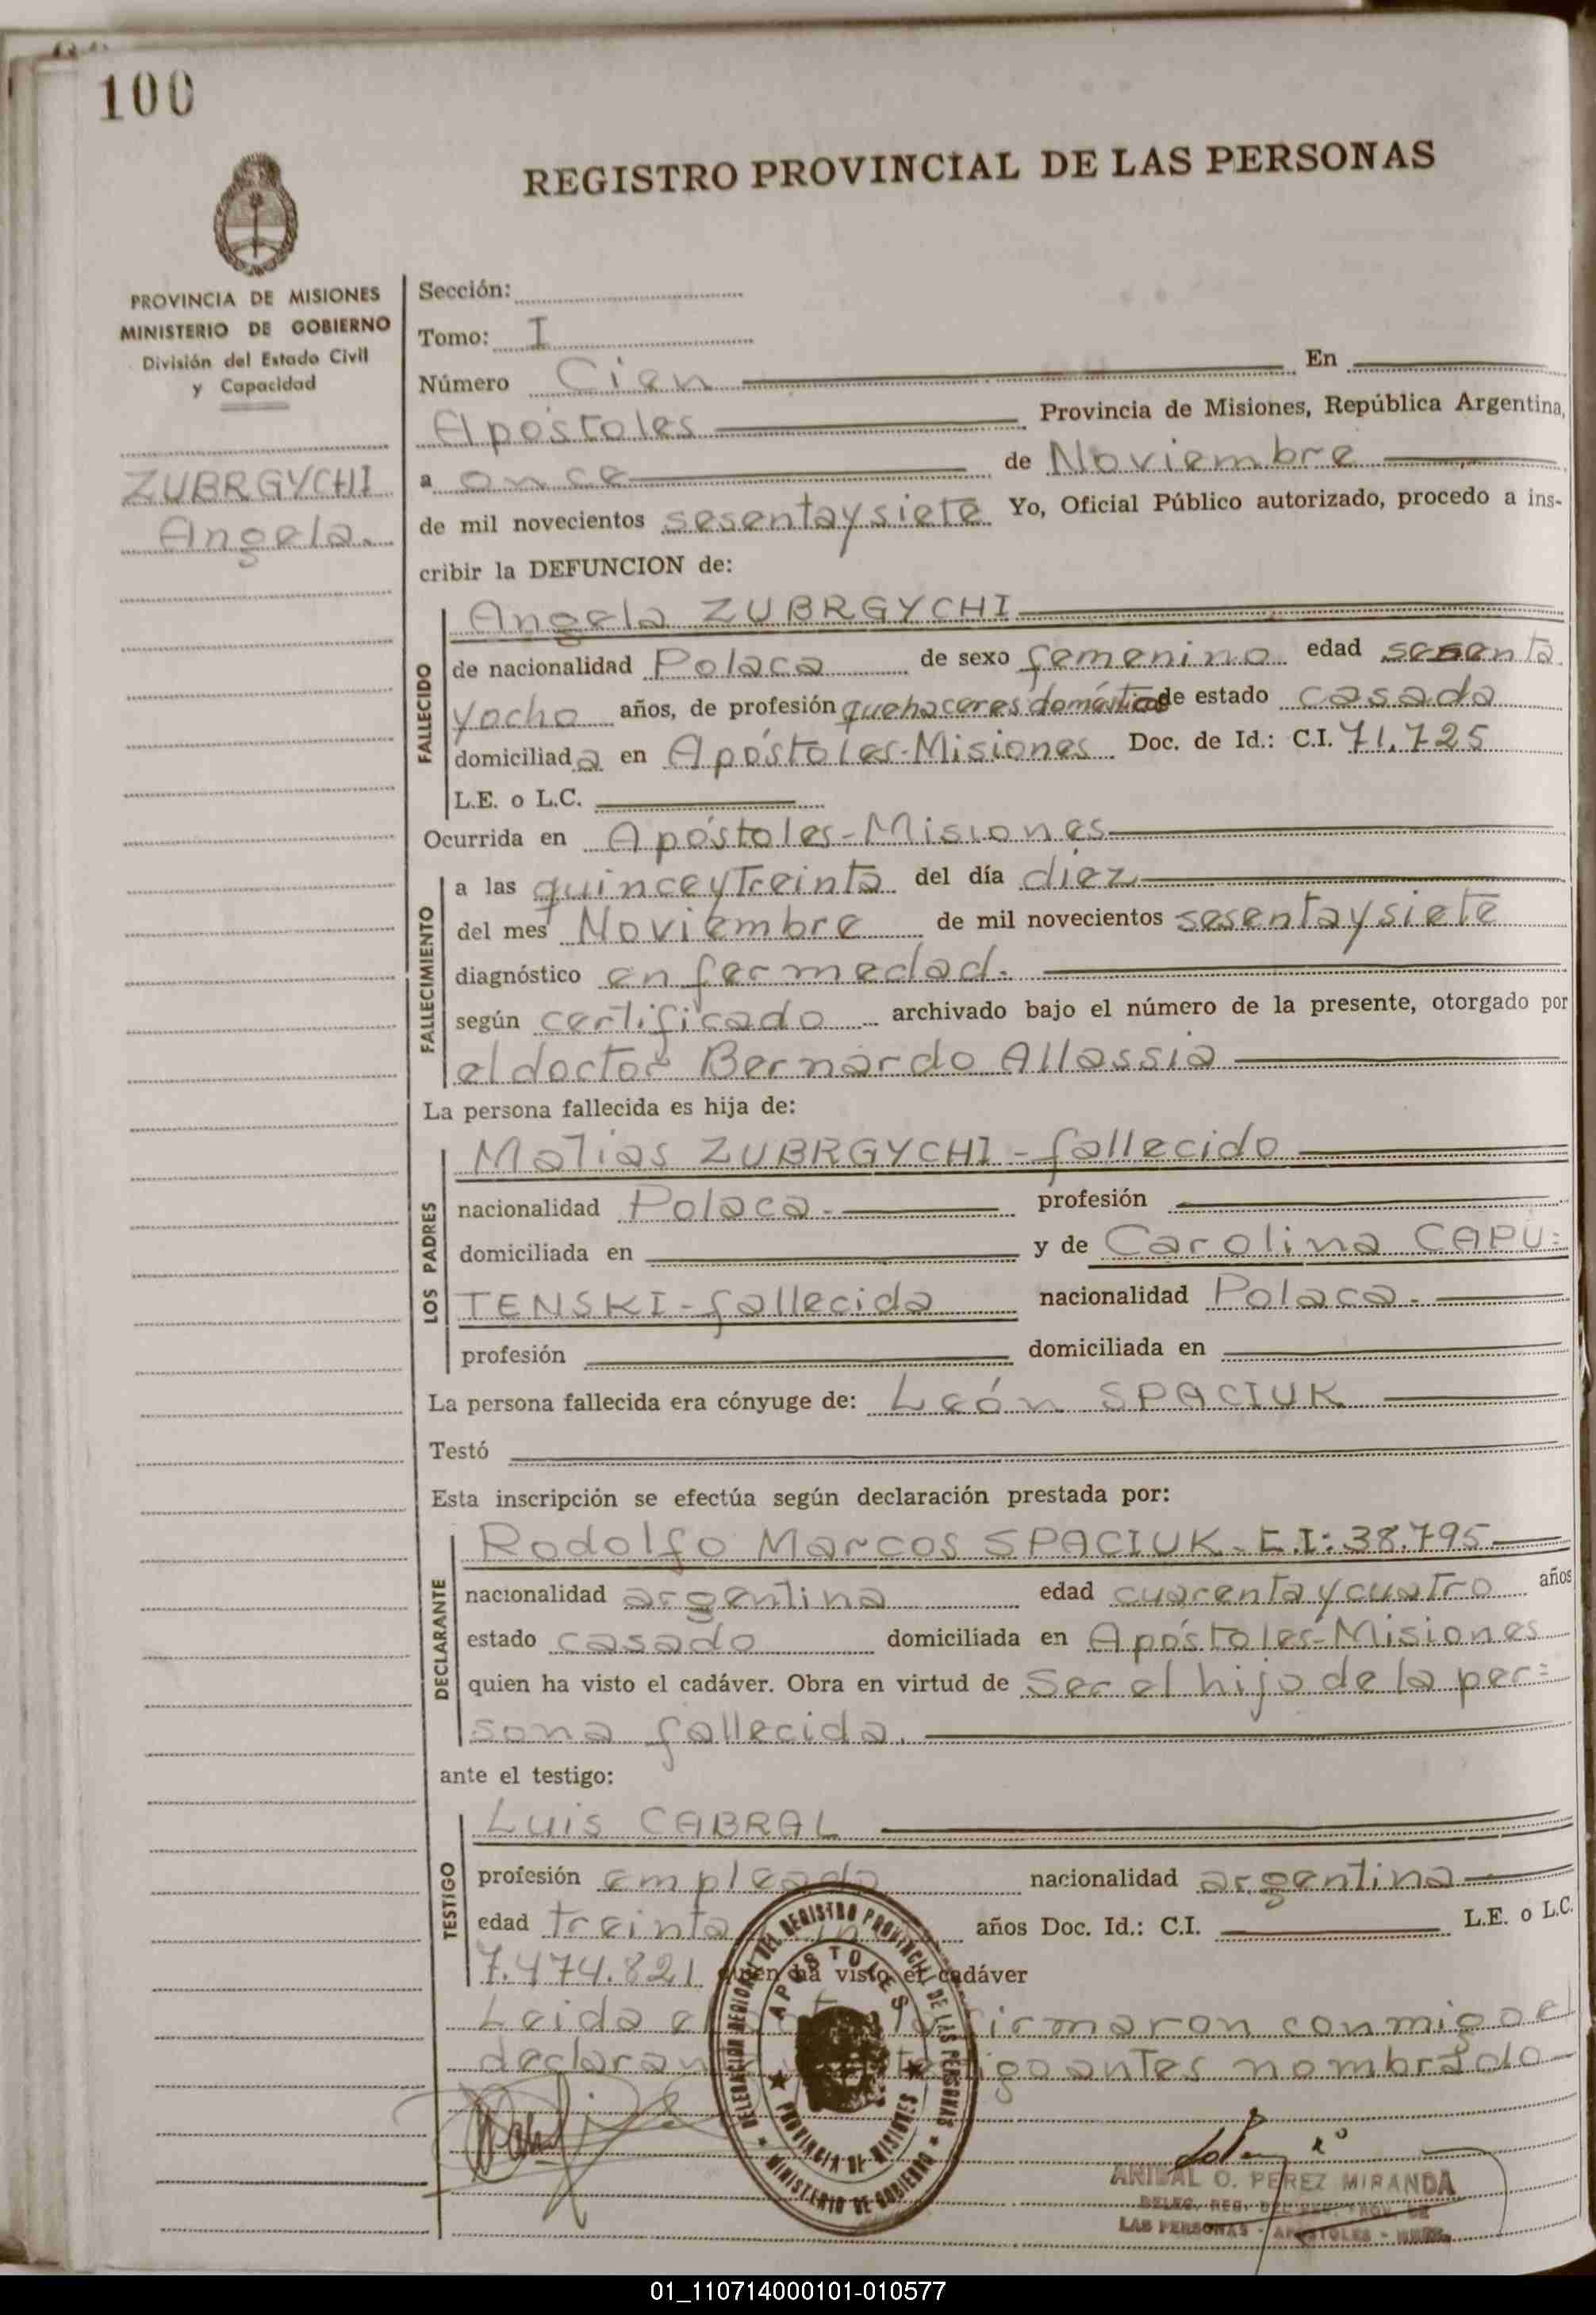 100
REGISTRO PROVINCIAL DE LAS PERSONAS
PROVINCIA DE MISIONES
MINISTERIO DE GOBIERNO
División del Estado Civil
y Capacidad
ZUBRGYCHI
Angela.
Sección:
Tomo: I
Número Cien En
Apóstoles Provincia de Misiones, República Argentina,
a once de Noviembre
de mil novecientos sesentaysiete Yo, Oficial Público autorizado, procedo a ins-
cribir la DEFUNCION de:
FALLECIDO
Angela ZUBRGYCHI
de nacionalidad Polaca de sexo femenino edad sesenta
yocho años, de profesión quehaceres domésticos de estado casada
domiciliada en Apóstoles-Misiones Doc. de Id.: C.I. 71.725
L.E. o L.C.
Ocurrida en Apóstoles-Misiones
FALLECIMIENTO
a las quinceytreinta del día diez
del mes Noviembre de mil novecientos sesentaysiete
diagnóstico enfermedad.
según certificado archivado bajo el número de la presente, otorgado por
el doctor Bernardo Allassia
La persona fallecida es hija de:
LOS PADRES
Matias ZUBRGYCHI - fallecido
nacionalidad Polaca. profesión
domiciliada en y de Carolina CAPU=
TENSKI - fallecida nacionalidad Polaca.
profesión domiciliada en
La persona fallecida era cónyuge de: León SPACIUK
Testó
Esta inscripción se efectúa según declaración prestada por:
DECLARANTE
Rodolfo Marcos SPACIUK - C.I: 38.795
nacionalidad argentina edad cuarentaycuatro años
estado casado domiciliada en Apóstoles-Misiones
quien ha visto el cadáver. Obra en virtud de ser el hijo de la per=
sona fallecida.
ante el testigo:
TESTIGO
Luis CABRAL
profesión empleado nacionalidad argentina
edad treinta años Doc. Id.: C.I. L.E. o L.C.
7.474.821 quien ha visto el cadáver
Leida el firmaron conmigo el
declarante testigo antes nombrado
DELEGACION REGIONAL DEL REGISTRO PROVINCIAL DE LAS PERSONAS
APOSTOLES
PROVINCIA DE MISIONES
MINISTERIO DE GOBIERNO
ANIBAL O. PEREZ MIRANDA
DELEG. REG. DEL REG. PROV. DE
LAS PERSONAS - APOSTOLES - MNES.
01_110714000101-010577